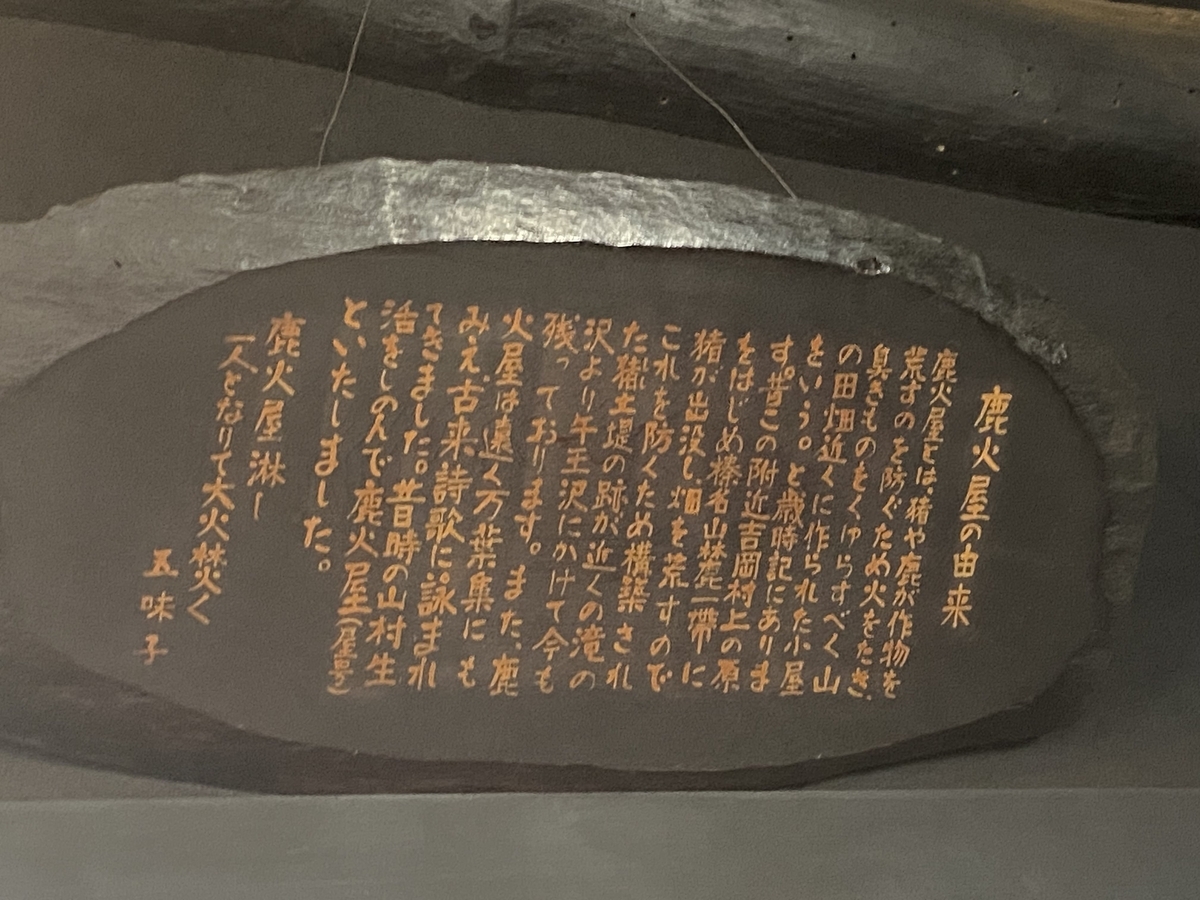 鹿火屋の由来
鹿火屋とは、猪や鹿が作物を
荒すのを防ぐため火をたき、
臭きものをくゆらすべく山
の田畑近くに作られた小屋
をいう。と歳時記にありま
す。昔この附近吉岡村上の原
をはじめ榛名山麓一帯に
猪が出没し畑を荒すので
これを防ぐため構築され
た猪土堤の跡が近くの滝の
沢より午王沢にかけて今も
残っております。また、鹿
火屋は遠く万葉集にも
みえ、古来詩歌に詠まれ
てきました。昔時の山村生
活をしのんで鹿火屋(屋号)
といたしました。
鹿火屋淋し
一人となりて大火焚く
五味子